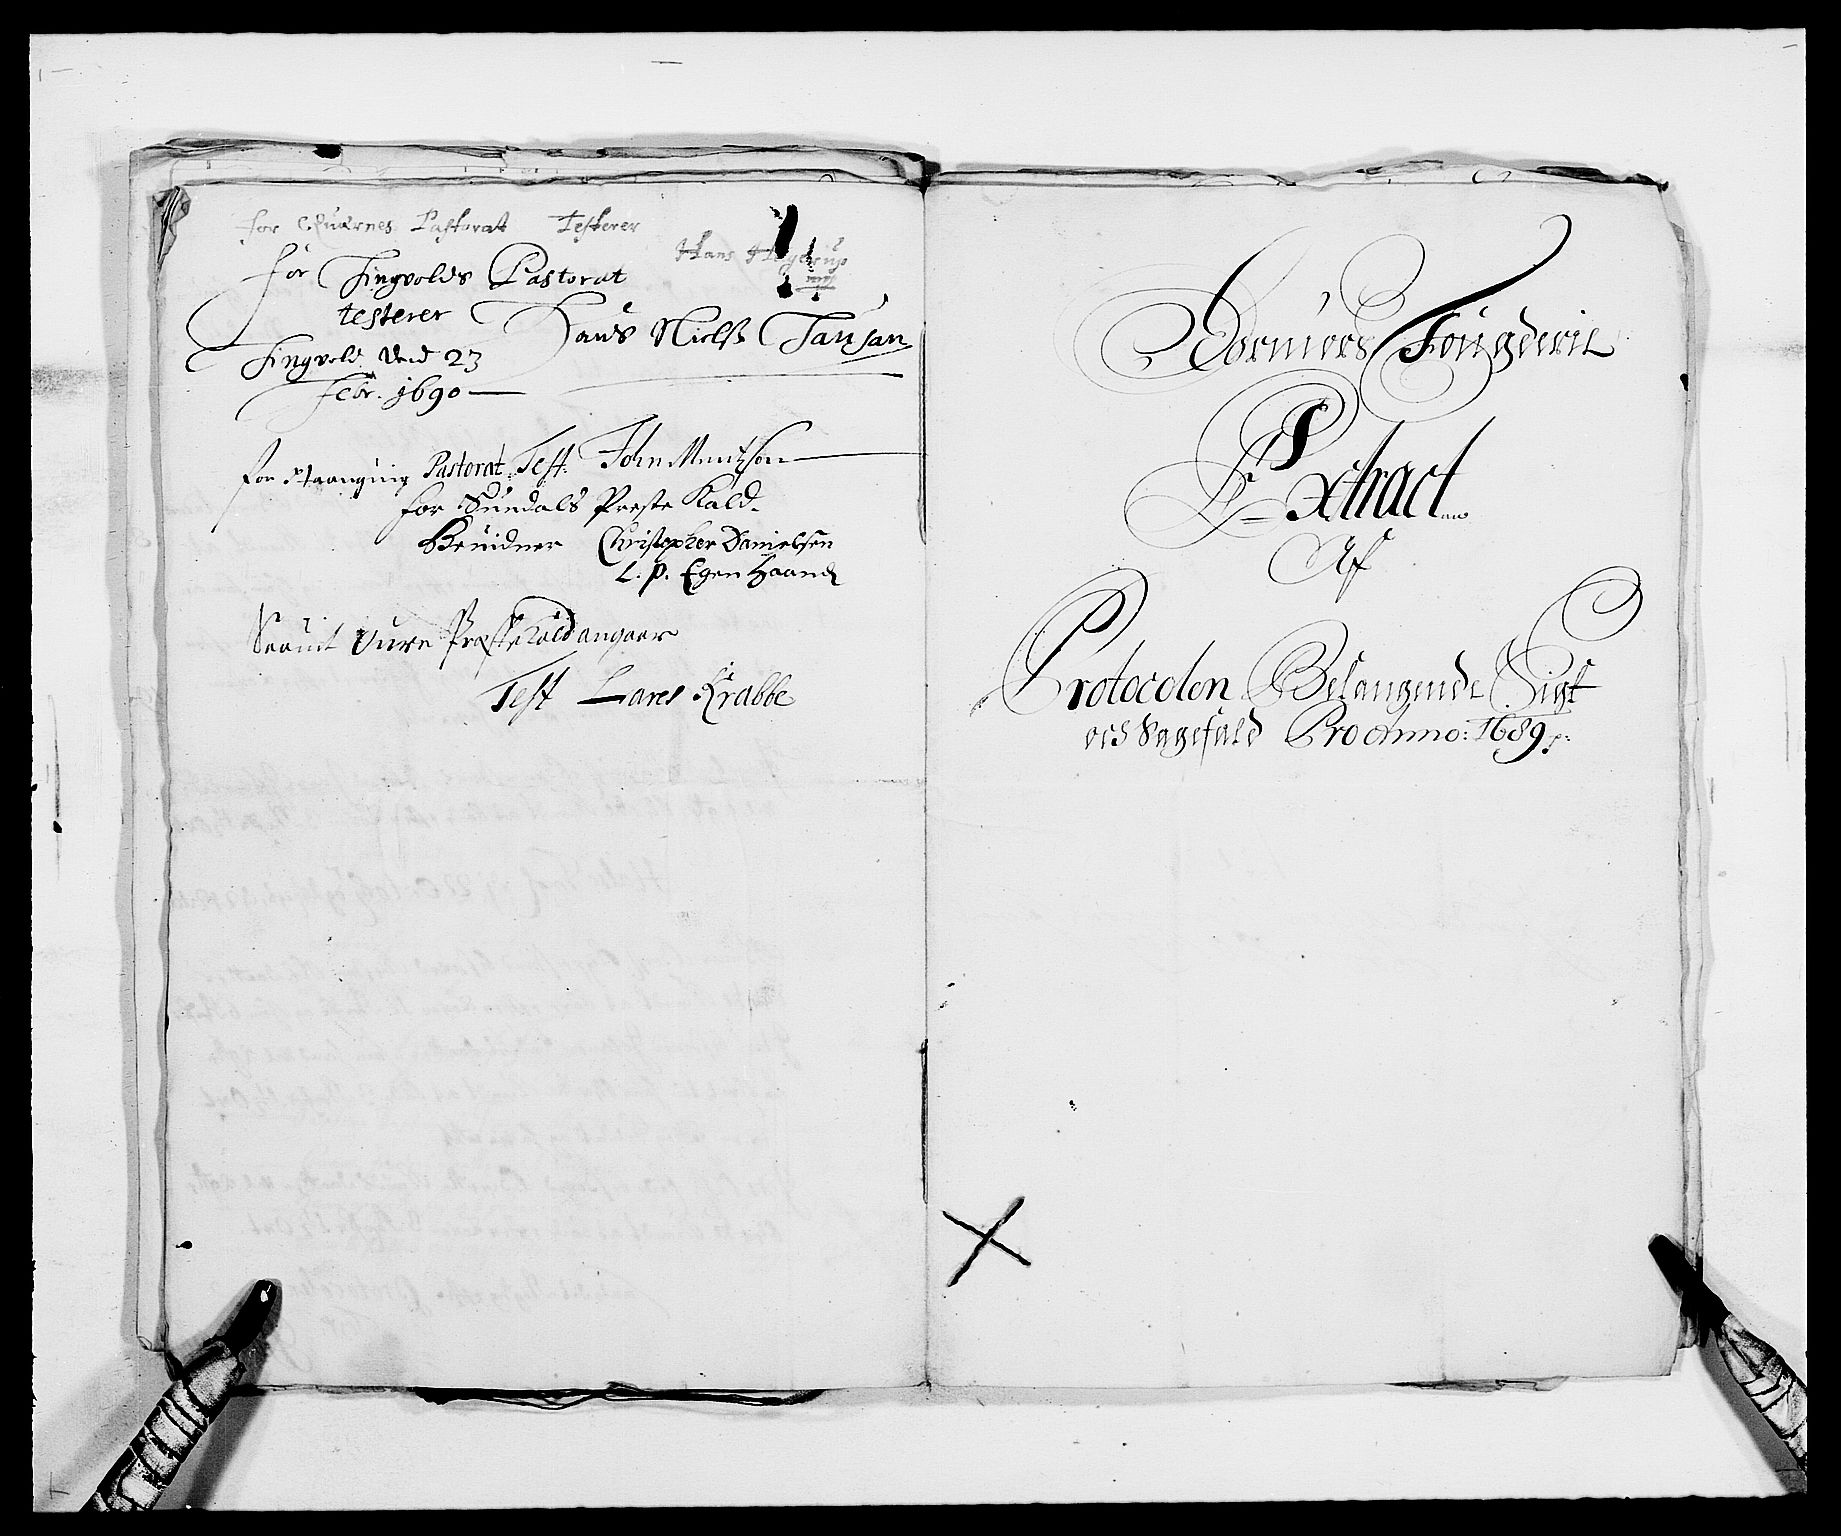 for Quernes Pastorat Testerer
Hans Hagerup
mp
for Tingvolds Pastorat
testerer Hans Nielsß Tausan
Tingvold Dend 23
Febr. 1690
for Pastorat Test: John Mentzsen
for Sundals Preste Kald
Beuidner Christopher Danielsen
L. P. Egen Haand
Saauit Vure Prestekald angaar
Test Lares Krabbe
Normørs Fougderie
Extract
Af
Protocolen Belangende Sigt
och Sagefald Pro Anno: 1689